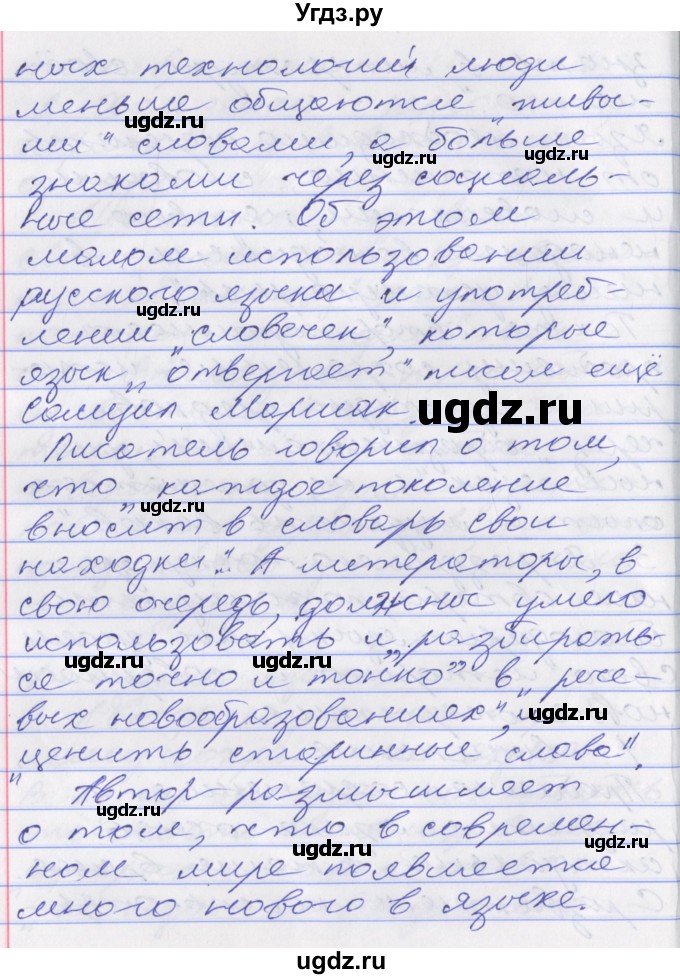 Угдз.ру
ных технологий люди
меньше общаются "живы-
ugdz.ru
ми" словами, а больше
ugdz.ru
знаками через социаль-
ные сети. Об этом
малом использовании
русского языка и употреб-
лении "словечек", которые
ugdz.ru
язык "отвергает" писал ещё
Самуил Маршак.
ugdz.ru
Писатель говорил о том,
что "каждое поколение
ugdz.ru
вносит в словарь свои
находки". А литераторы, в
свою очередь, должны умело
использовать и "разбирать-
ugdz.ru
ugdz.ru
ся точно и тонко" в "рече-
вых новообразованиях",
ugdz.ru
ценить старинные слова".
"Автор размышляет
ugdz.ru
о том, что в современ-
ugdz.ru
ном мире появляется
много нового в языке.
ugdz.ru